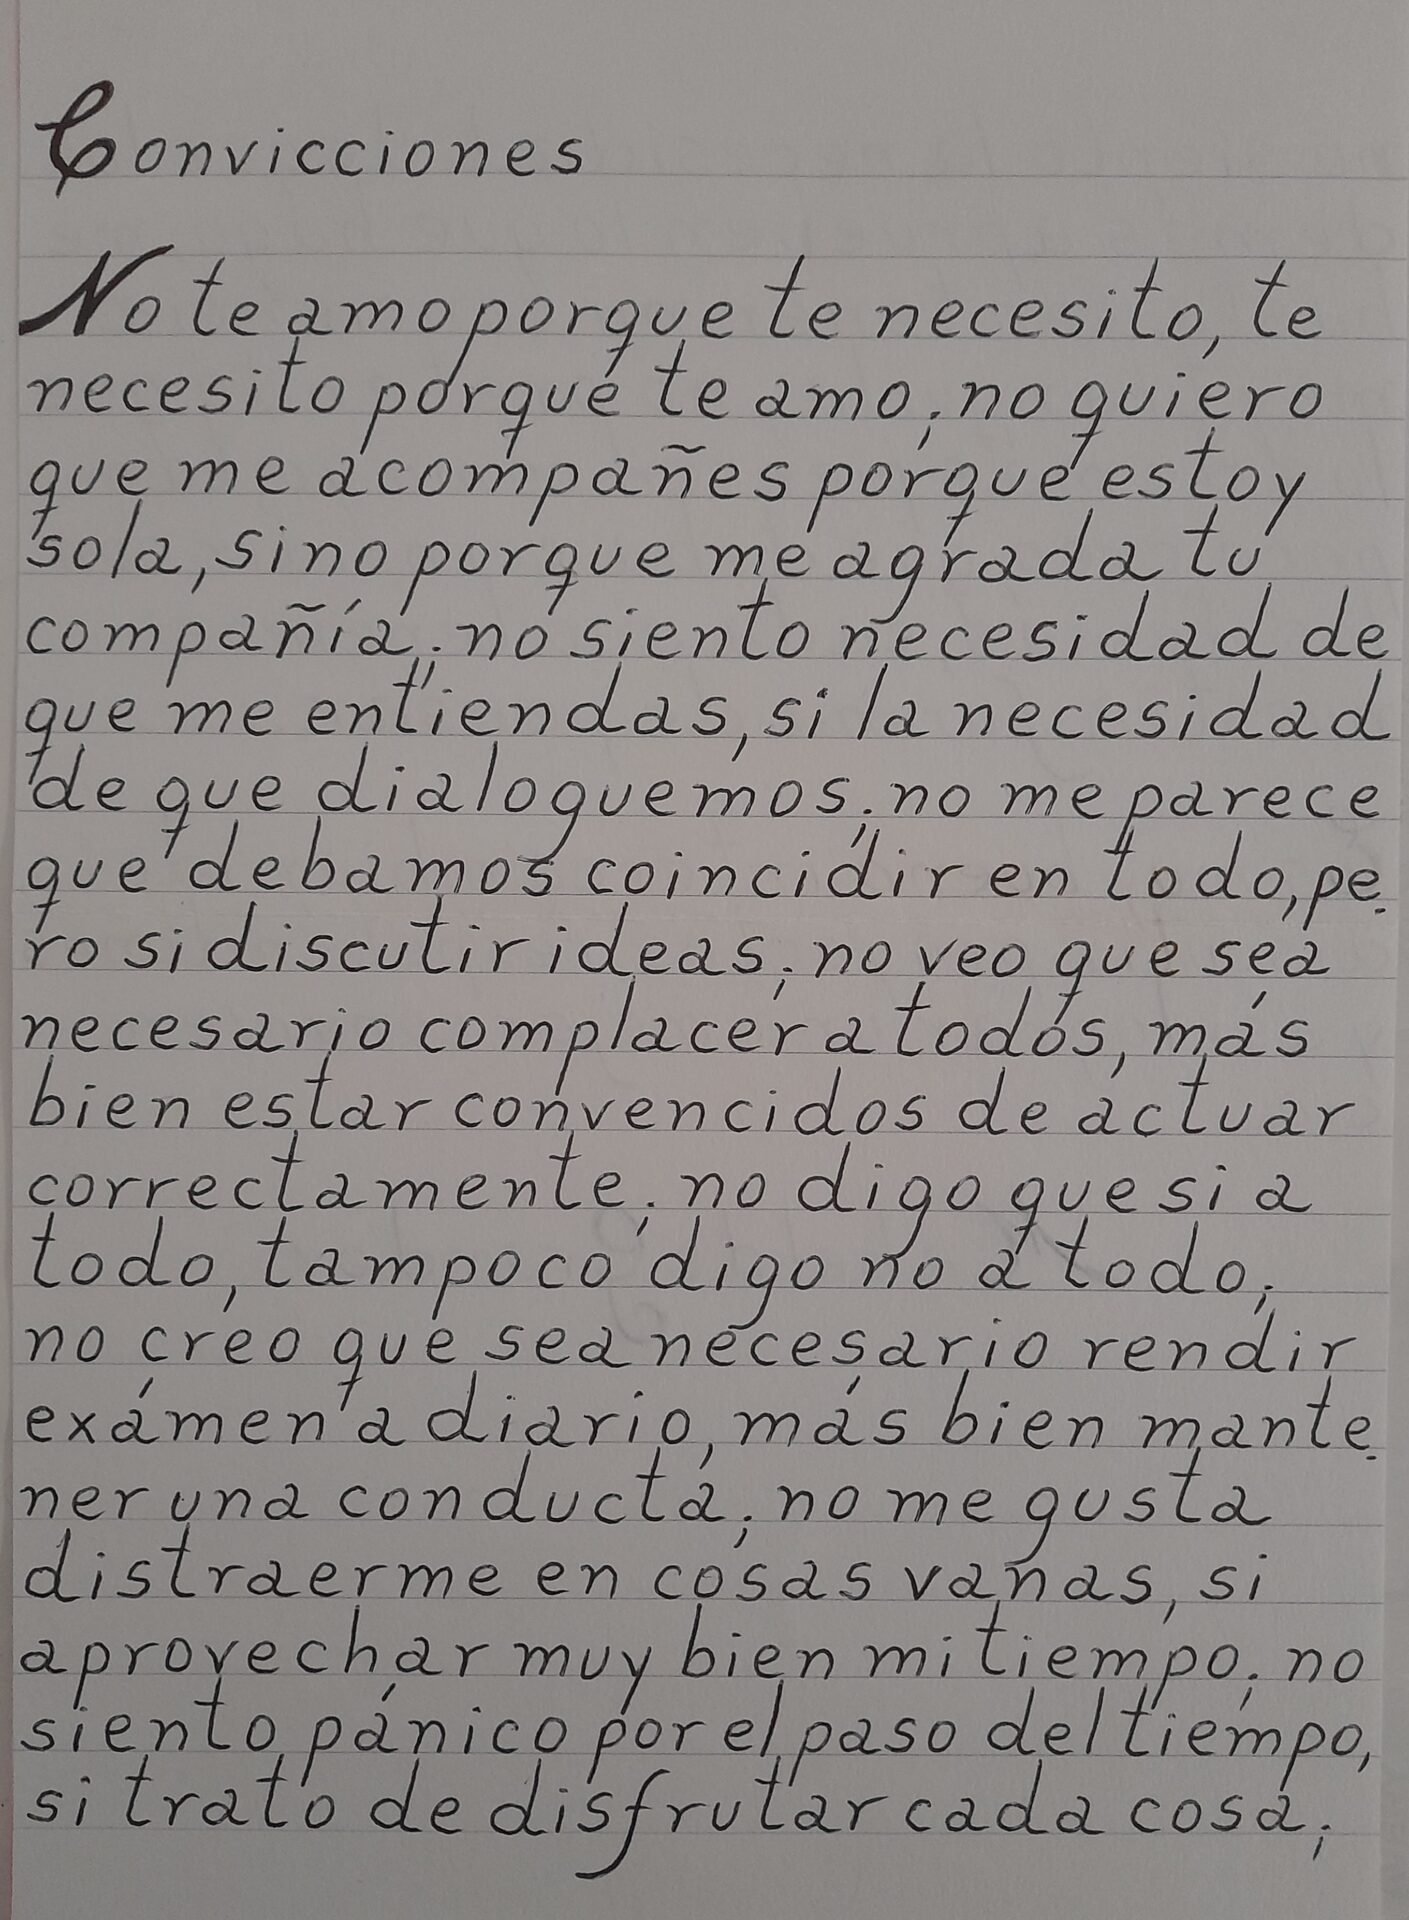 Convicciones
No te amo porque te necesito, te
necesito porque te amo; no quiero
que me acompañes porque estoy
sola, sino porque me agrada tu
compañía; no siento necesidad de
que me entiendas, si la necesidad
de que dialoguemos; no me parece
que debamos coincidir en todo, pe-
ro si discutir ideas; no veo que sea
necesario complacer a todos, más
bien estar convencidos de actuar
correctamente; no digo que si a
todo, tampoco digo no a todo;
no creo que sea necesario rendir
exámen a diario, más bien mante-
ner una conducta; no me gusta
distraerme en cosas vanas, si
aprovechar muy bien mi tiempo; no
siento pánico por el paso del tiempo,
si trato de disfrutar cada cosa;